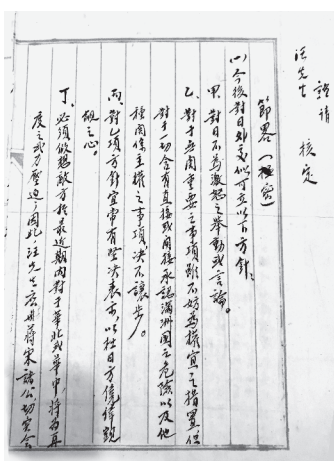 汪先生 謹請 核定
節略（極密
㈠今後對日外交似可立以下方針：
甲、對日不為激怒之舉動或言論。
乙、對于無關重要之事項雖不妨為權宜之措置但
對于一切含有直接或間接承認滿洲國之危險以及他
種関係主權之事項決不讓步。
丙、對乙項方針宜常有堅決表示以杜日方僥倖覬
覦之心。
丁、必須假想敵方於最近期內對于華北或華中將為再
度之武力壓迫。因此，汪先生應與蔣宋諸公切實會